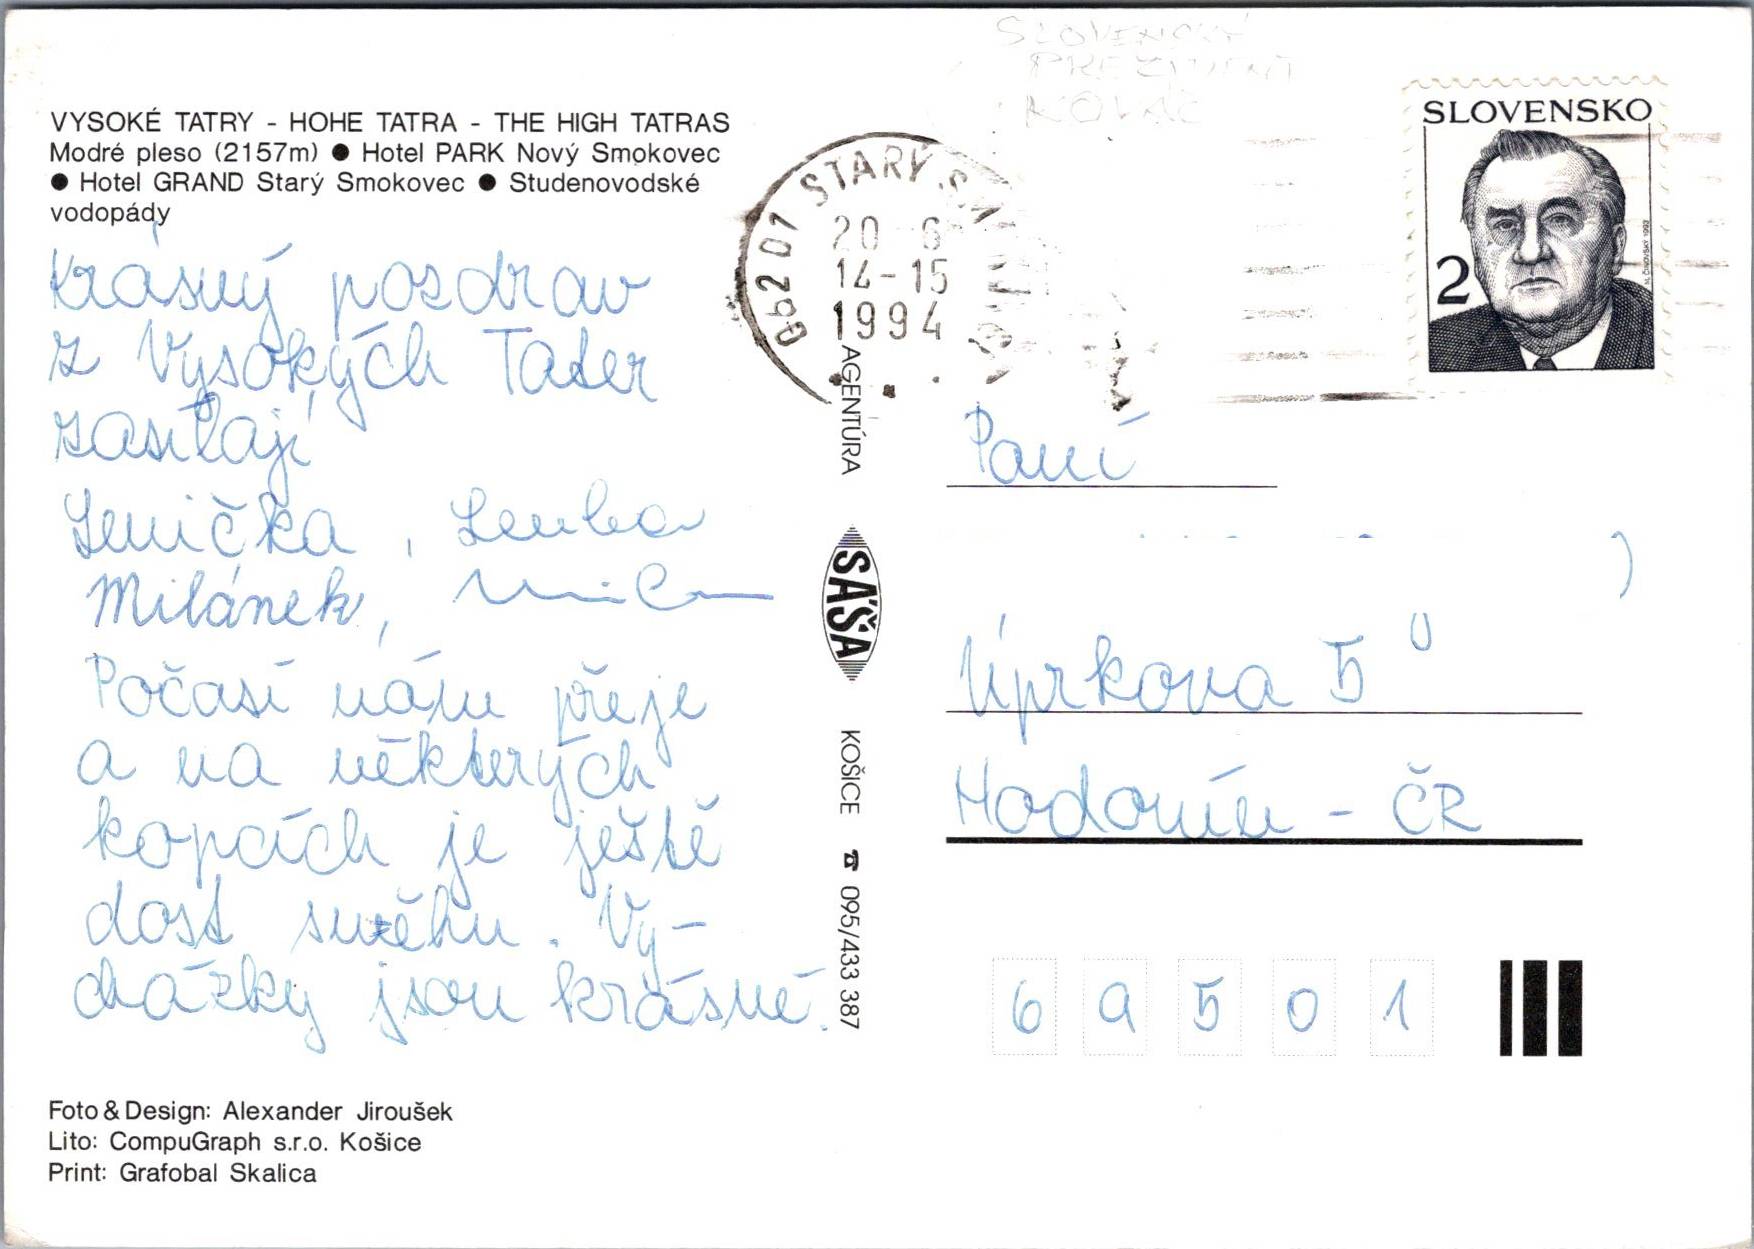 SLOVENSKÝ
PREZIDENT
KOVÁČ
VYSOKÉ TATRY - HOHE TATRA - THE HIGH TATRAS
Modré pleso (2157m) ● Hotel PARK Nový Smokovec
● Hotel GRAND Starý Smokovec ● Studenovodské
vodopády
Krásný pozdrav
z Vysokých Tater
zasílají
Lenička, Lenka
Milánek,
Počasí nám přeje
a na některých
kopcích je ještě
dost sněhu. Vy-
cházky jsou krásné.
Foto & Design: Alexander Jiroušek
Lito: CompuGraph s.r.o. Košice
Print: Grafobal Skalica
062 01 STARÝ
20 6
14-15
1994
AGENTÚRA SÁŠA KOŠICE ☎ 095/433 387
SLOVENSKO
2
Paní
Úprkova 5
Hodonín - ČR
69501